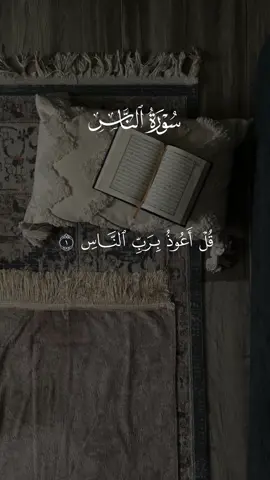 سُورَةُ ٱلنَّاسِ
قُلۡ أَعُوذُ بِرَبِّ ٱلنَّاسِ ١